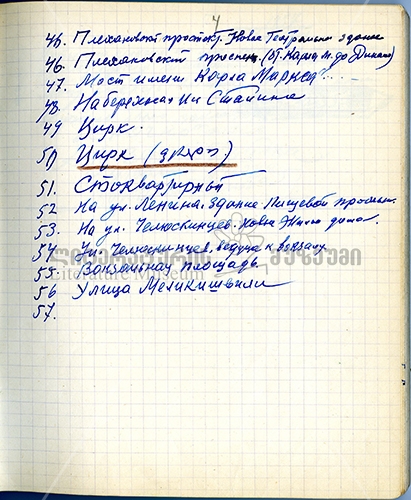 4
45. Плехановский проспект. Новое Театральное здание
46. Плехановский проспект. (от Карла М. до Динамо)
47. Мост имени Карла Маркса.....
48. Набережная Им Сталина
49 Цирк.
50 Цирк
51. Стоквартирный
52 На ул. Ленина. Здание Пищевой промыш.
53. На ул. Челюскинцев. Новые Жилые дома
54. Ул. Челюскинцев, ведущая к вокзалу.
55. Вокзальная площадь.
56 Улица Меликишвили
57.
ლიტერატურის მუზეუმი
Literature Museum